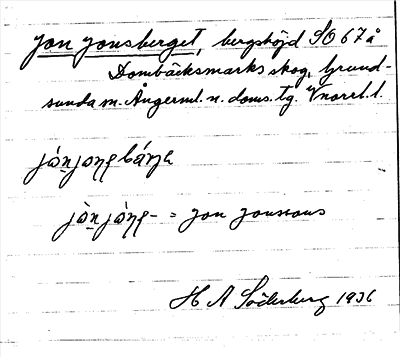 Jon Jonsberget, bergshöjd SO 67 å
Dombäcksmarks skog, Grund-
sunda m. Ångerml. n. doms. tg. Vnorrl. l.
= Jon Jonssons
H A Söderberg 1936